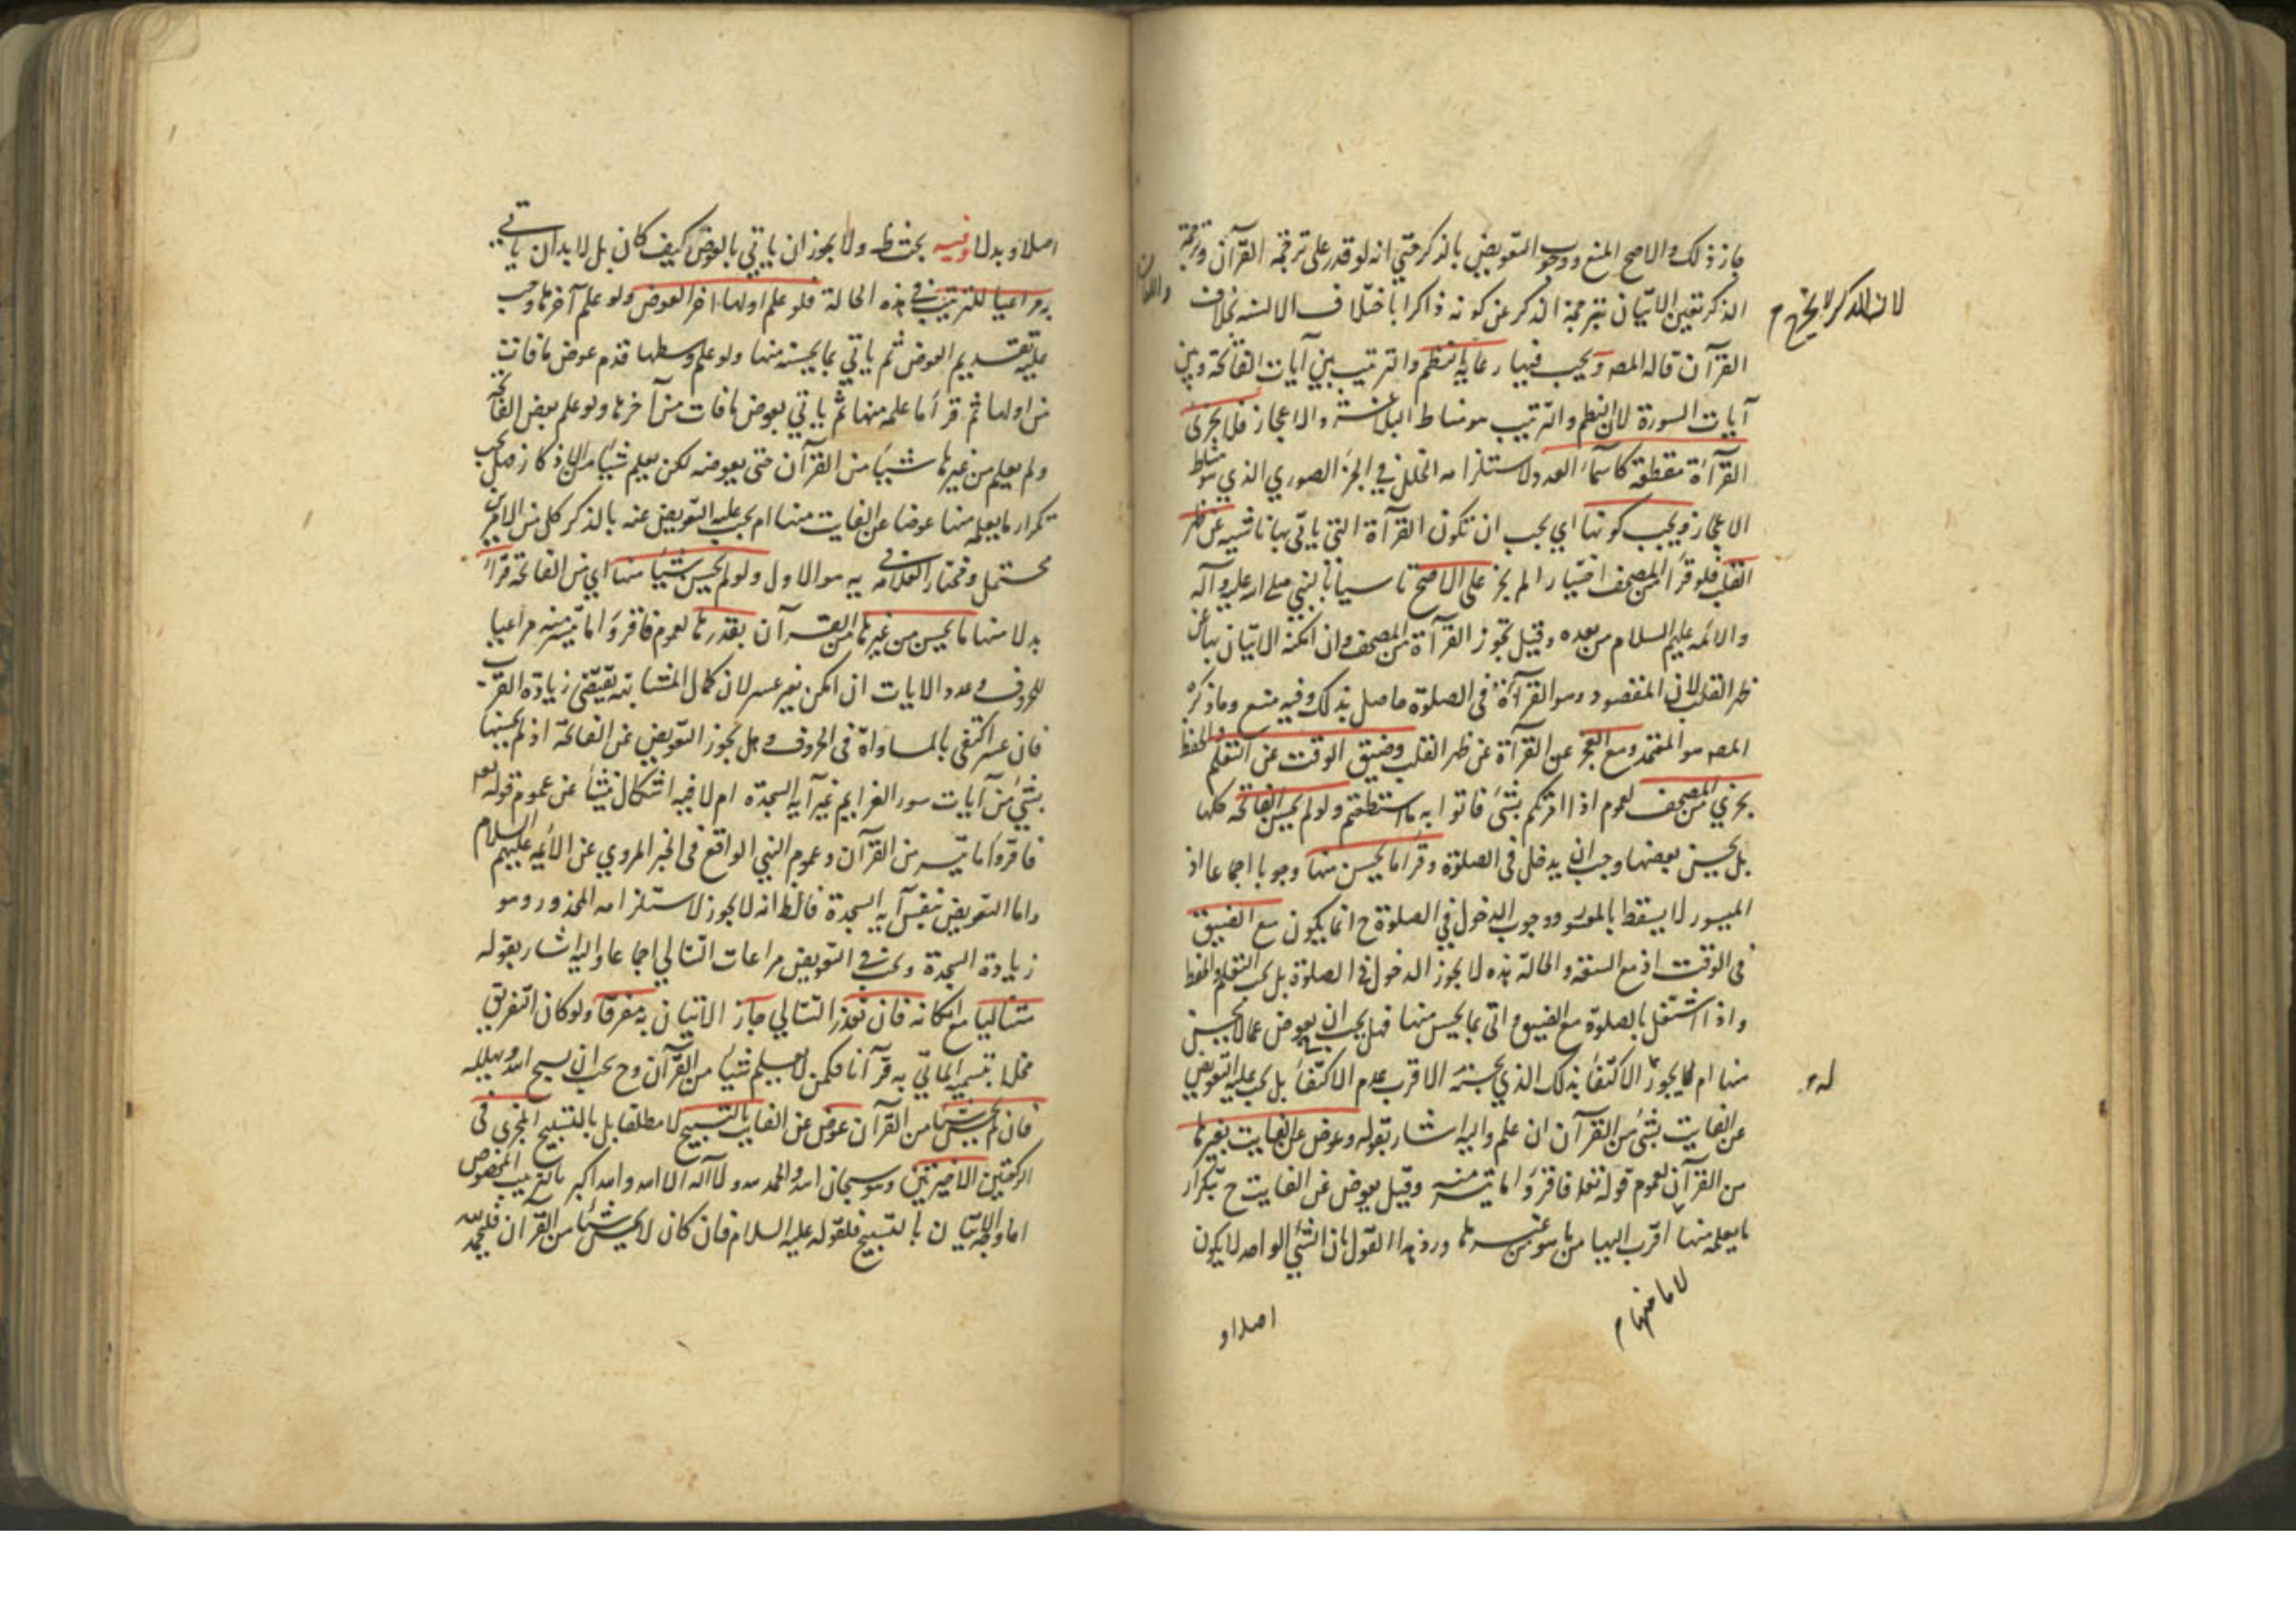 جاز ذلك والاصح المنع ووجوب التعويض بالذكر حتى انه لو قدر على ترجمة القرآن وترجمة
الذكر تعين الاتيان بترجمة الذكر عن كونه ذاكرا باختلاف الالسنة بخلاف
القرآن قاله المصه ويجب فيها رعاية النظم والترتيب بين آيات الفاتحة وبين
آيات السورة لان النظم والترتيب هو مناط البلاغة والاعجاز فلا يجزى
القرآءة مقطعة كاسمآء العدد لاستلزامه الخلل في الجزء الصوري الذي هو مناط
الاعجاز ويجب كونها اي يجب ان تكون القرآءة التي ياتى بها ناشية عن ظهر
القلب فلو قرأ من المصحف اختيارا لم يجز على الاصح تاسيا بالنبي صلى الله عليه وآله
والائمه عليهم السلام من بعده وقيل تجوز القرآءة من المصحف وان امكنه الاتيان بها عن
ظهر القلب لان المقصود وهو القرآءة في الصلوة حاصل بذلك وفيه منع وما ذكره
المصه هو المعتمد ومع العجز عن القرآءة عن ظهر القلب وضيق الوقت عن التعلم والحفظ
يجزي من المصحف لعموم اذا امرتكم بشئ فاتوا به ما استطعتم ولو لم يحسن الفاتحة كلها
بل يحسن بعضها وجب ان يدخل في الصلوة وقرأ ما يحسن منها وجوبا اجماعا اذ
الميسور لا يسقط بالمعسور ووجوب الدخول في الصلوة ح انما يكون مع الضيق
في الوقت اذ مع السعة والحالة هذه لا يجوز الدخول في الصلوة بل يجب التعلم والحفظ
واذا اشتغل بالصلوة مع الضيق واتى بما يحسن منها فهل يجب ان يعوض عما لا يحسن
منها ام لا يجوز الاكتفآء بذلك الذي يحسنه الاقرب عدم الاكتفآء بل يجب عليه التعويض
عن الفايت بشئ من القرآن ان علم واليه اشار بقوله وعوض عن الفايت بغيرها
من القرآن لعموم قوله تعالى فاقرؤا ما تيسر منه وقيل يعوض عن الفايت ح بتكرار
ما يعلمه منها اقرب اليها من ما هو من غيرها ورد هذا القول بان الشئ الواحد لا يكون
لان الذكر لا يخرج م
له م
لاما منها م
اصلا و
اصلا وبدلا وفيه بحث ظ ولا يجوز ان ياتي بالعوض كيف كان بل لا بد ان ياتي
به مراعيا للترتيب في هذه الحالة فلو علم اولها اخر العوض ولو علم آخرها وجب
عليه تقديم العوض ثم ياتي بما يحسنه منها ولو علم وسطها قدم عوض ما فات
من اولها ثم قرأ ما علمه منها ثم ياتي بعوض ما فات من آخرها ولو علم بعض الفاتحة
ولم يعلم من غيرها شيئا من القرآن حتى يعوضه لكن يعلم شيئا من الاذكار فهل يجب
تكرار ما يعلمه منها عوضا عن الفايت منها ام يجب عليه التعويض عنه بالذكر كل من الامرين
محتمل ومختار العلامة في يه هو الاول ولو لم يحسن شيئا منها اي من الفاتحة قرأ
بدلا منها ما يحسن من غيرها من القرآن بقدرها لعموم فاقرؤا ما تيسر منه مراعيا
للحروف وعدد الايات ان امكن بغير عسر لان كمال المشابهة يقتضي زيادة القرب
فان عسر اكتفى بالمساواة في الحروف وهل يجوز التعويض عن الفاتحة اذ لم يحسنها
بشئ من آيات سور العزايم غير آية السجدة ام لا فيه اشكال ينشأ عن عموم قوله تعالى
فاقرؤا ما تيسر من القرآن وعموم النهي الواقع في الخبر المروي عن الائمه عليهم السلام
واما التعويض بنفس آية السجدة فالظ انه لا يجوز لاستلزامه المحذور وهو
زيادة السجدة ويجب في التعويض مراعات التتالي اجماعا واليه اشار بقوله
متتاليا مع امكانه فان تعذر التتالي جاز الاتيان به مفرقا ولو كان التفريق
مخلا بتسمية الماتي به قرآنا فكمن لا يعلم شيئا من القرآن وح يجب ان يسبح الله ويهلله
فان لم يحسن شيئا من القرآن عوض عن الفايت بالتسبيح لا مطلقا بل بالتسبيح المجزي في
الركعتين الاخيرتين وهو سبحان الله والحمد لله ولا اله الا الله والله اكبر بالترتيب المخصوص
اما وجه الاتيان بالتسبيح فلقوله عليه السلام فان كان لا يحسن شيئا من القرآن فليحمد الله